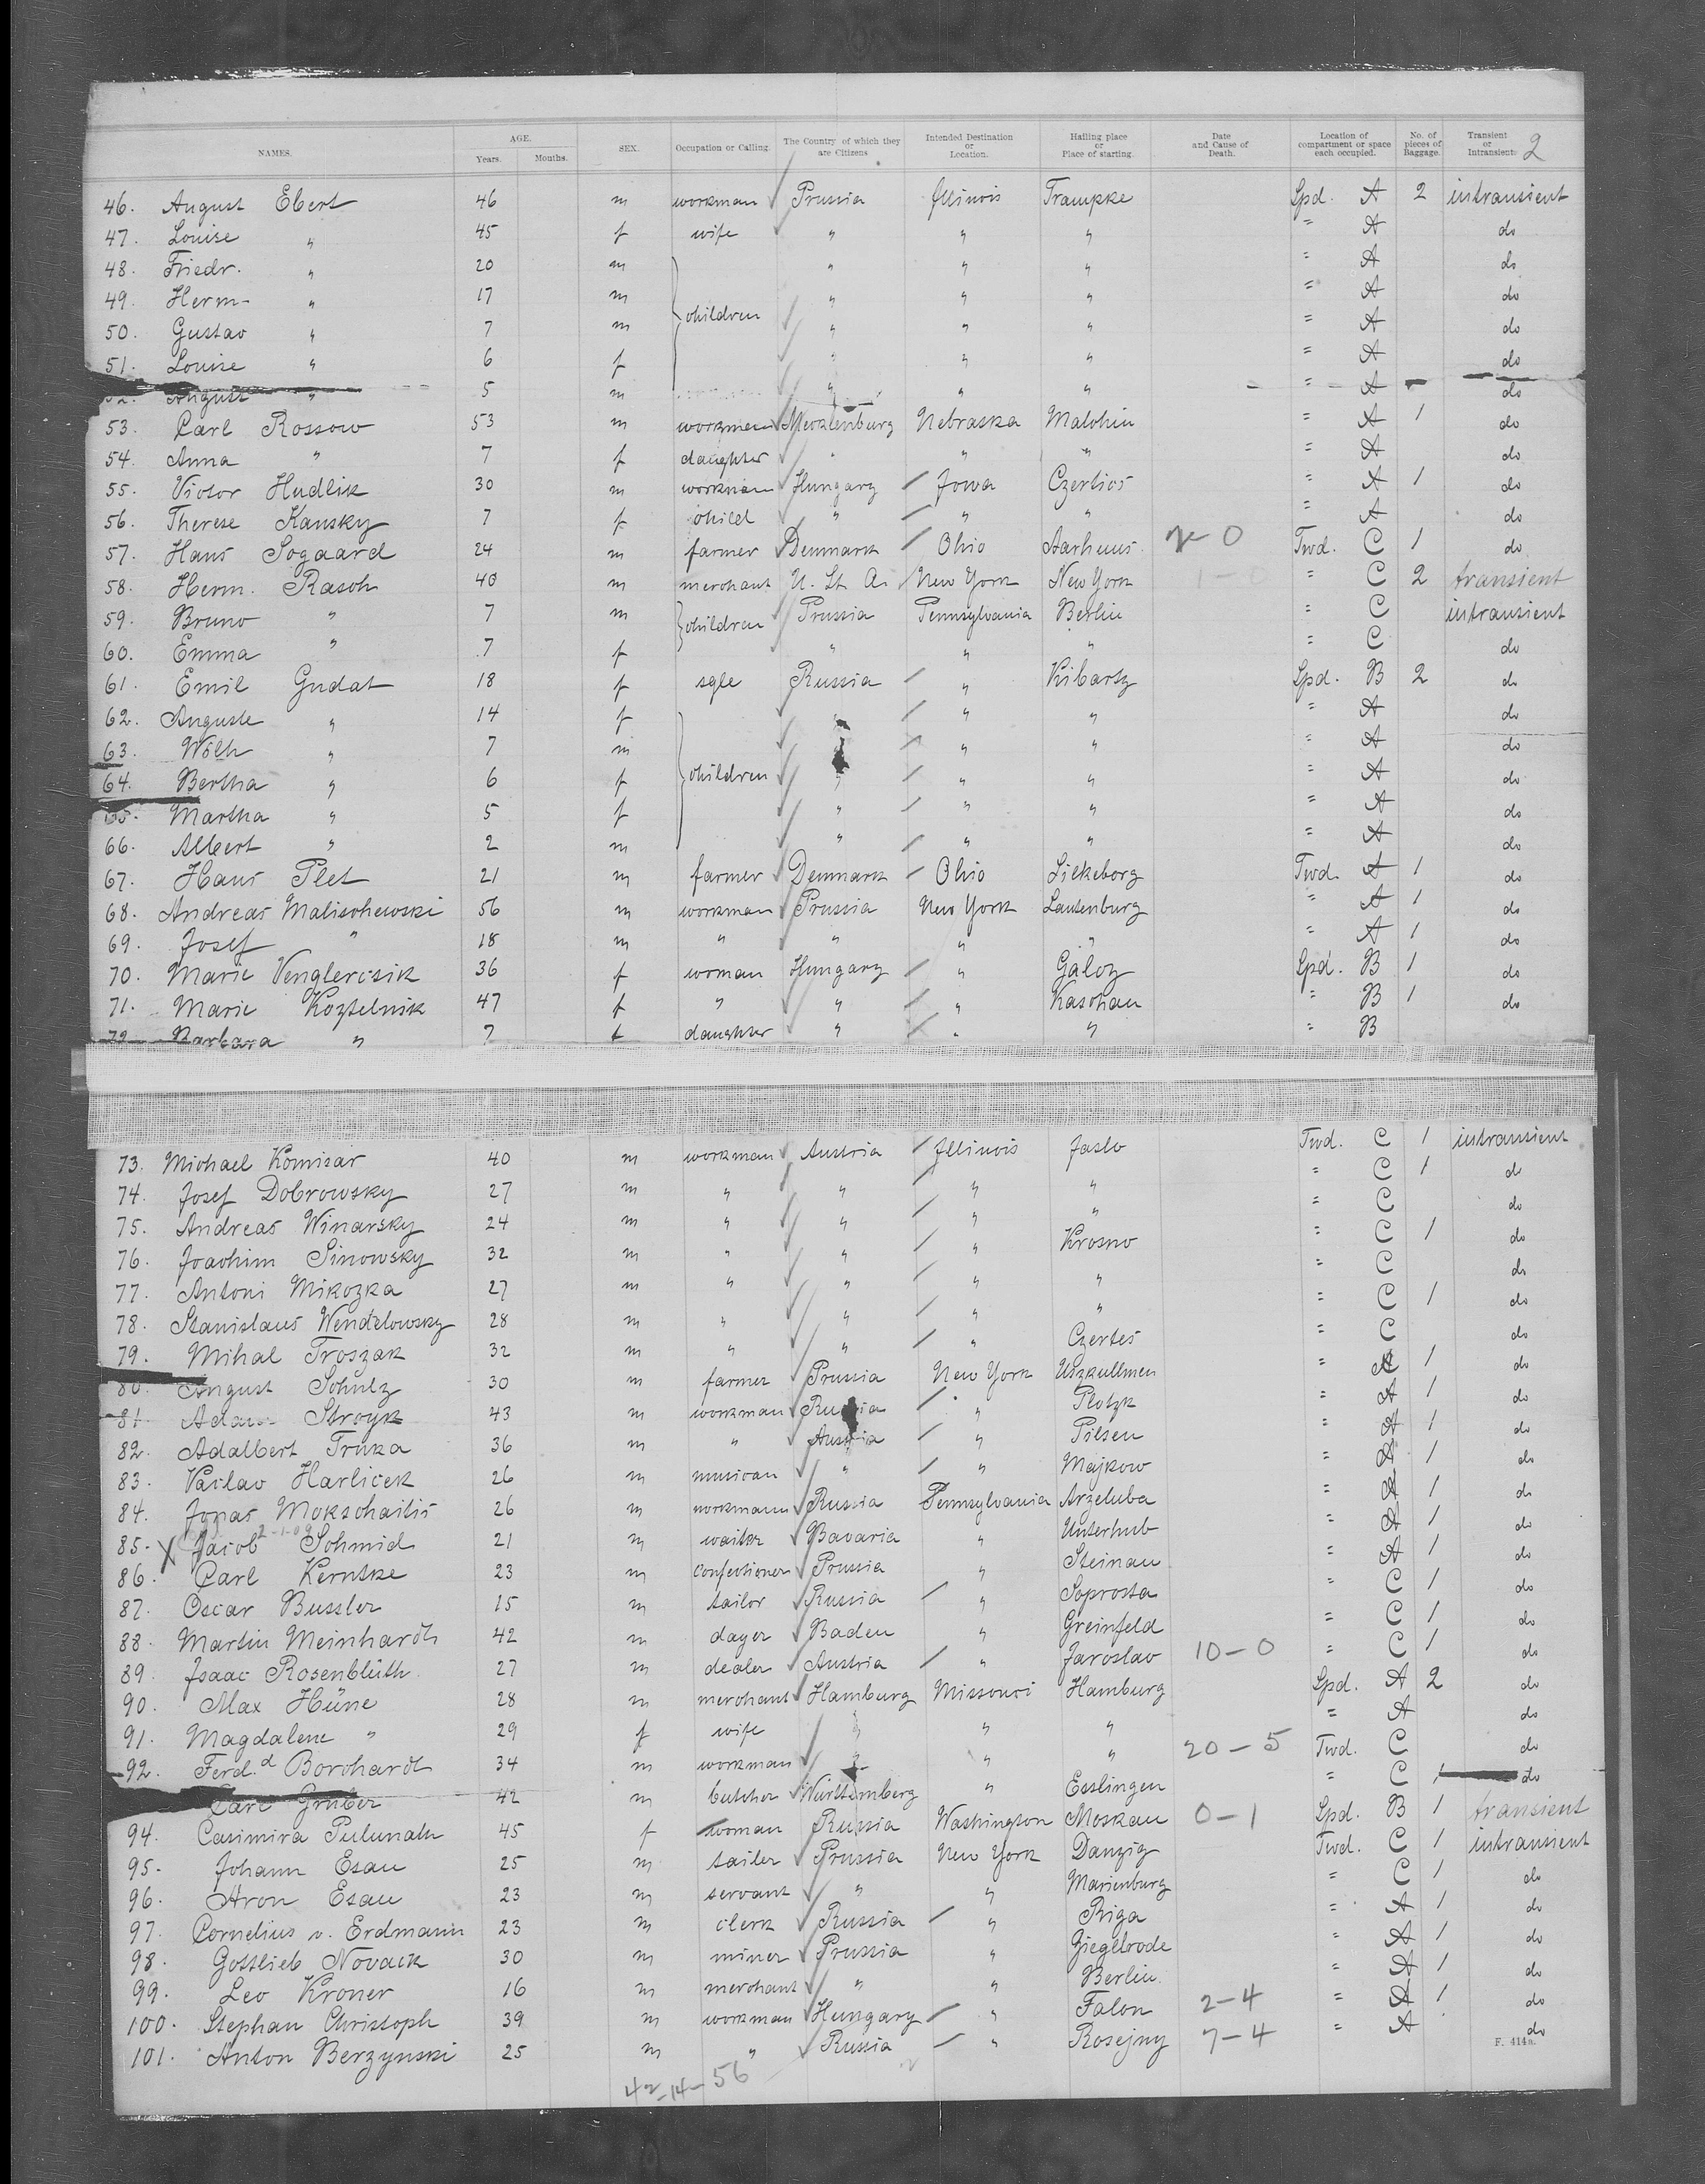 NAMES. AGE. Years. Months. SEX. Occupation or Calling. The Country of which they are Citizens Intended Destination or Location. Hailing place or Place of starting. Date and Cause of Death. Location of compartment or space each occupied. No. of pieces of Baggage. Transient or Intransient 2
46. August Ebert 46 m workman Prussia Illinois Trampke Spd. A 2 intransient
47. Louise " 45 f wife " " " " A do
48. Friedr. " 20 m " " " " A do
49. Herm. " 17 m children " " " " A do
50. Gustav " 7 m " " " " A do
51. Louise " 6 f " " " " A do
52. August " 5 m " " " " A do
53. Carl Rossow 53 m workman Mecklenburg Nebraska Malchin " A 1 do
54. Anna " 7 f daughter " " " " A do
55. Victor Hudlik 30 m workman Hungary Iowa Czertics " A 1 do
56. Therese Kansky 7 f child " " " " A do
57. Hans Sogaard 24 m farmer Denmark Ohio Aarhuus 2-0 Twd. C 1 do
58. Herm. Rasch 40 m merchant U. St. A. New York New York 1-0 " C 2 transient
59. Bruno " 7 m children Prussia Pennsylvania Berlin " C intransient
60. Emma " 7 f " " " " C do
61. Emil Gudat 18 f sgle Russia " Kibarty Spd. B 2 do
62. Auguste " 14 f " " " " A do
63. Wilh " 7 m " " " A do
64. Bertha " 6 f children " " " " A do
65. Martha " 5 f " " " " A do
66. Albert " 2 m " " " " A do
67. Hans Plet 21 m farmer Denmark Ohio Silkeborg Twd. A 1 do
68. Andreas Malischewski 56 m workman Prussia New York Lautenburg " A 1 do
69. Josef " 18 m " " " " " A 1 do
70. Marie Venglercsik 36 f woman Hungary " Galoz Spd. B 1 do
71. Marie Koztelnik 47 f " " " Kaschau " B 1 do
72. Barbara " 7 f daughter " " " " B
73. Michael Komisar 40 m workman Austria Illinois Jaslo Twd. C 1 intransient
74. Josef Dobrowsky 27 m " " " " " C 1 do
75. Andreas Winarsky 24 m " " " " " C do
76. Joachim Sinowsky 32 m " " " Krosno " C 1 do
77. Antoni Mikozka 27 m " " " " " C do
78. Stanislaus Wendelowsky 28 m " " " " " C 1 do
79. Mihal Troszak 32 m " " " Czertes " C do
80. August Schulz 30 m farmer Prussia New York Uszkullmen " A 1 do
81. Adam Stroyk 43 m workman Russia " Plotzk " A 1 do
82. Adalbert Truka 36 m " Austria " Pilsen " A 1 do
83. Vaclav Harlicek 26 m musican " " Majkow " A 1 do
84. Jonas Mokschaitis 26 m workmann Russia Pennsylvania Arzeluba " A 1 do
85. X Jacob Schmid 21 m waiter Bavaria " Unterhub " A 1 do
86. Carl Kerntke 23 m confectioner Prussia " Steinau " A 1 do
87. Oscar Bussler 15 m tailor Russia " Soprosta " C 1 do
88. Martin Meinhardt 42 m dayer Baden " Greinfeld " C 1 do
89. Isaac Rosenblüth 27 m dealer Austria " Jaroslav 10-0 " C 1 do
90. Max Hüne 28 m merchant Hamburg Missouri Hamburg Spd. A 2 do
91. Magdalene " 29 f wife " " " " A do
92. Ferd.d Borchardt 34 m workman " " " 20-5 Twd. C do
Carl Gruber 42 m butcher Württemberg " Esslingen " C 1 do
94. Casimira Pulunath 45 f woman Russia Washington Moskau 0-1 Spd. B 1 transient
95. Johann Esau 25 m tailer Prussia New York Danzig Twd. C 1 intransient
96. Aron Esau 23 m servant " " Marienburg " C 1 do
97. Cornelius v. Erdmann 23 m clerk Russia " Riga " A 1 do
98. Gottlieb Novack 30 m miner Prussia " Zieglrode " A 1 do
99. Leo Kroner 16 m merchant " " Berlin " A 1 do
100. Stephan Christoph 39 m workman Hungary " Falon 2-4 " A 1 do
101. Anton Berzynski 25 m " Russia " Rosejny 7-4 " A do
F. 414a.
42-14-56